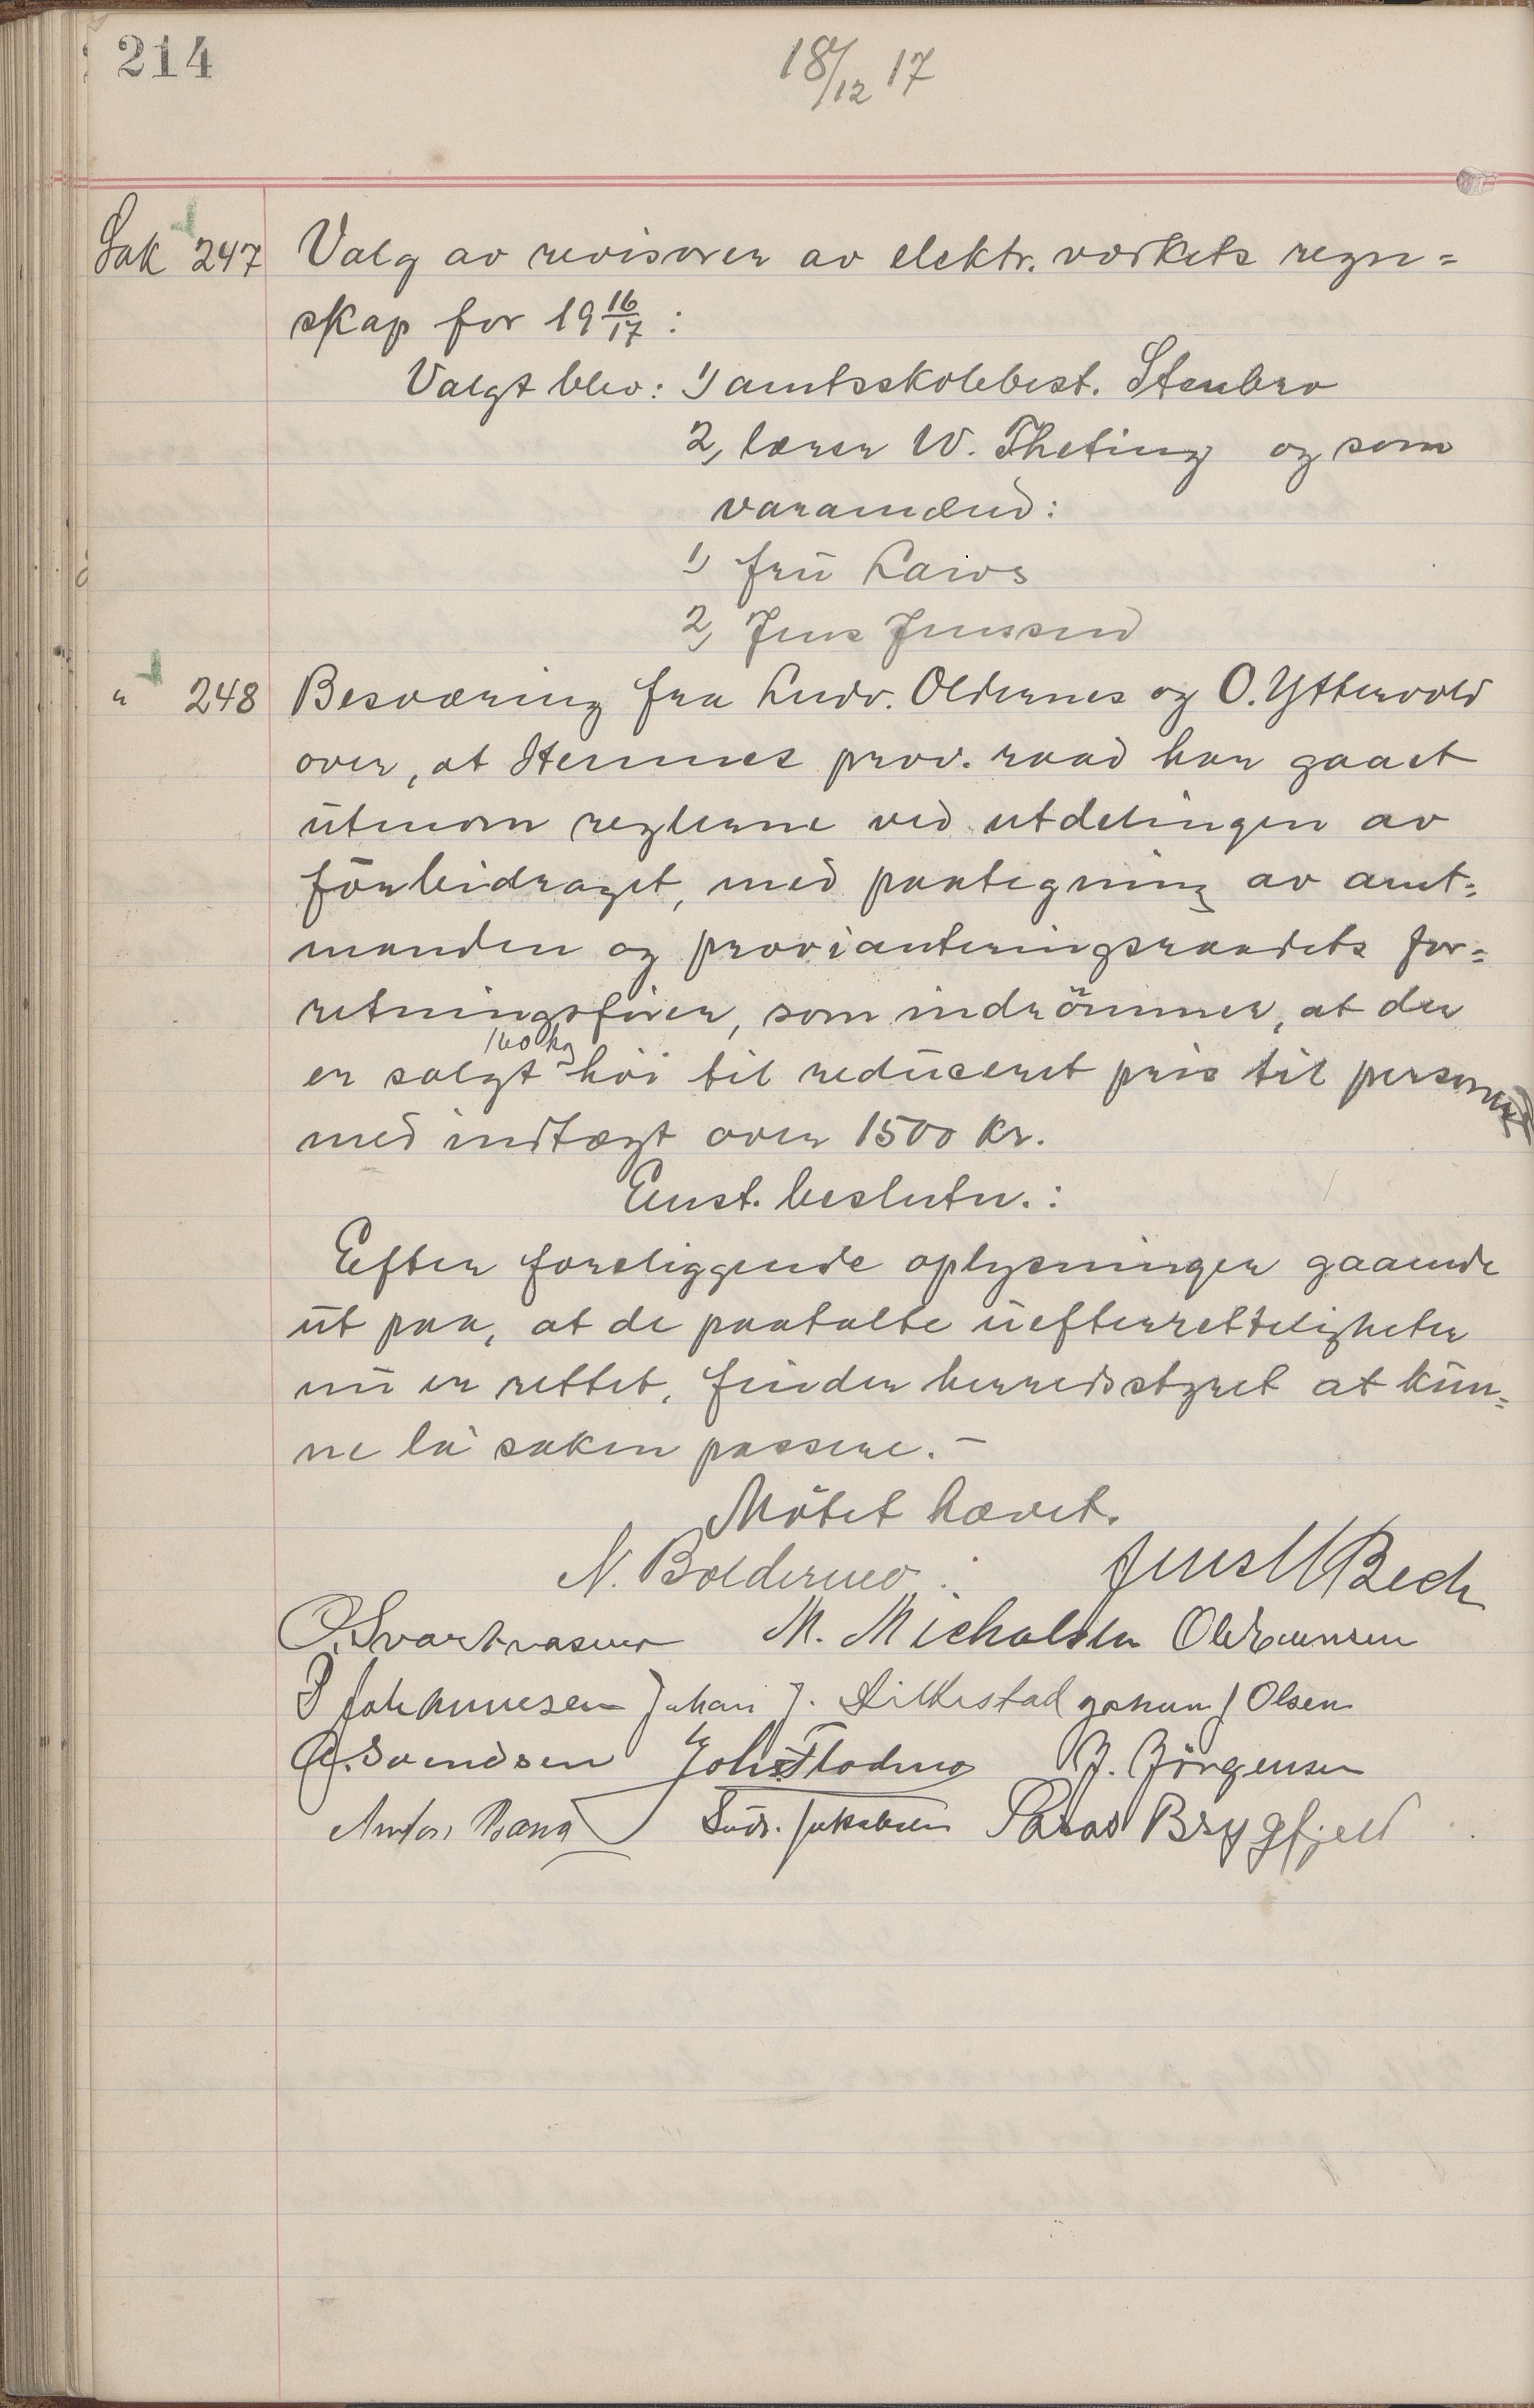 214
18/12 17
Sak 247 Valg av revisorer av elektr. verkets regn=
skap for 19 16/17 :
Valgt blev: 1) amtsskolebest. Stenbro
2, lærer W. Theting og som
varamænd:
1) frü Laws
2, Jens Jenssen
" 248 Besværing fra Ludv. Oldernes og O. Yttervold
over, at Hemnes prov. raad har gaaet
ütenom reglerne ved utdelingen av
förbidraget, med paategning av amt=
manden og provianteringsraadets for=
retningsförer, som indrömmer, at der
160 kg
er solgt höi til redüceret pris til personer
med indtægt over 1500 kr.
Enst. beslutn. :
Efter foreliggende oplysninger gaaende
üt paa, at de paatalte üefterretteligheter
nü er rettet, finder herredsstyret at kün=
ne la saken passere. –
Mötet hævet.
N. Boldermo Jens M Bech
P. Svartvasmo M. Michalsen
P Johannesen Johan J. Silkestad Johan J Olsen
A. Svendsen Johs Flodmo J. Jörgensen
Anton Bang Sivdr. Jakobsen Paras Brygfjeld